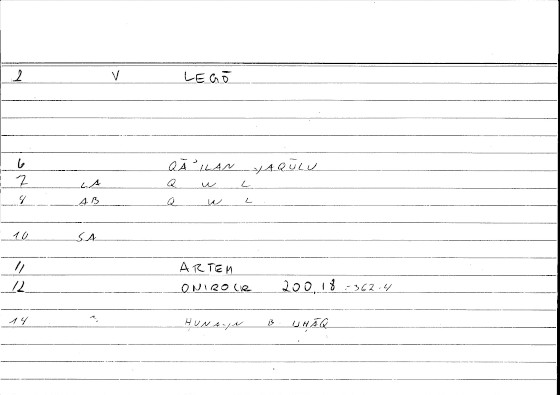 2 V LEGŌ
6 QĀʾILAN YAQŪLU
7 LA Q W L
8 AB Q W L
10 SA
11 ARTEM
12 ONIROCR 200,18 =362.4
14 HUNAYN B ISHĀQ